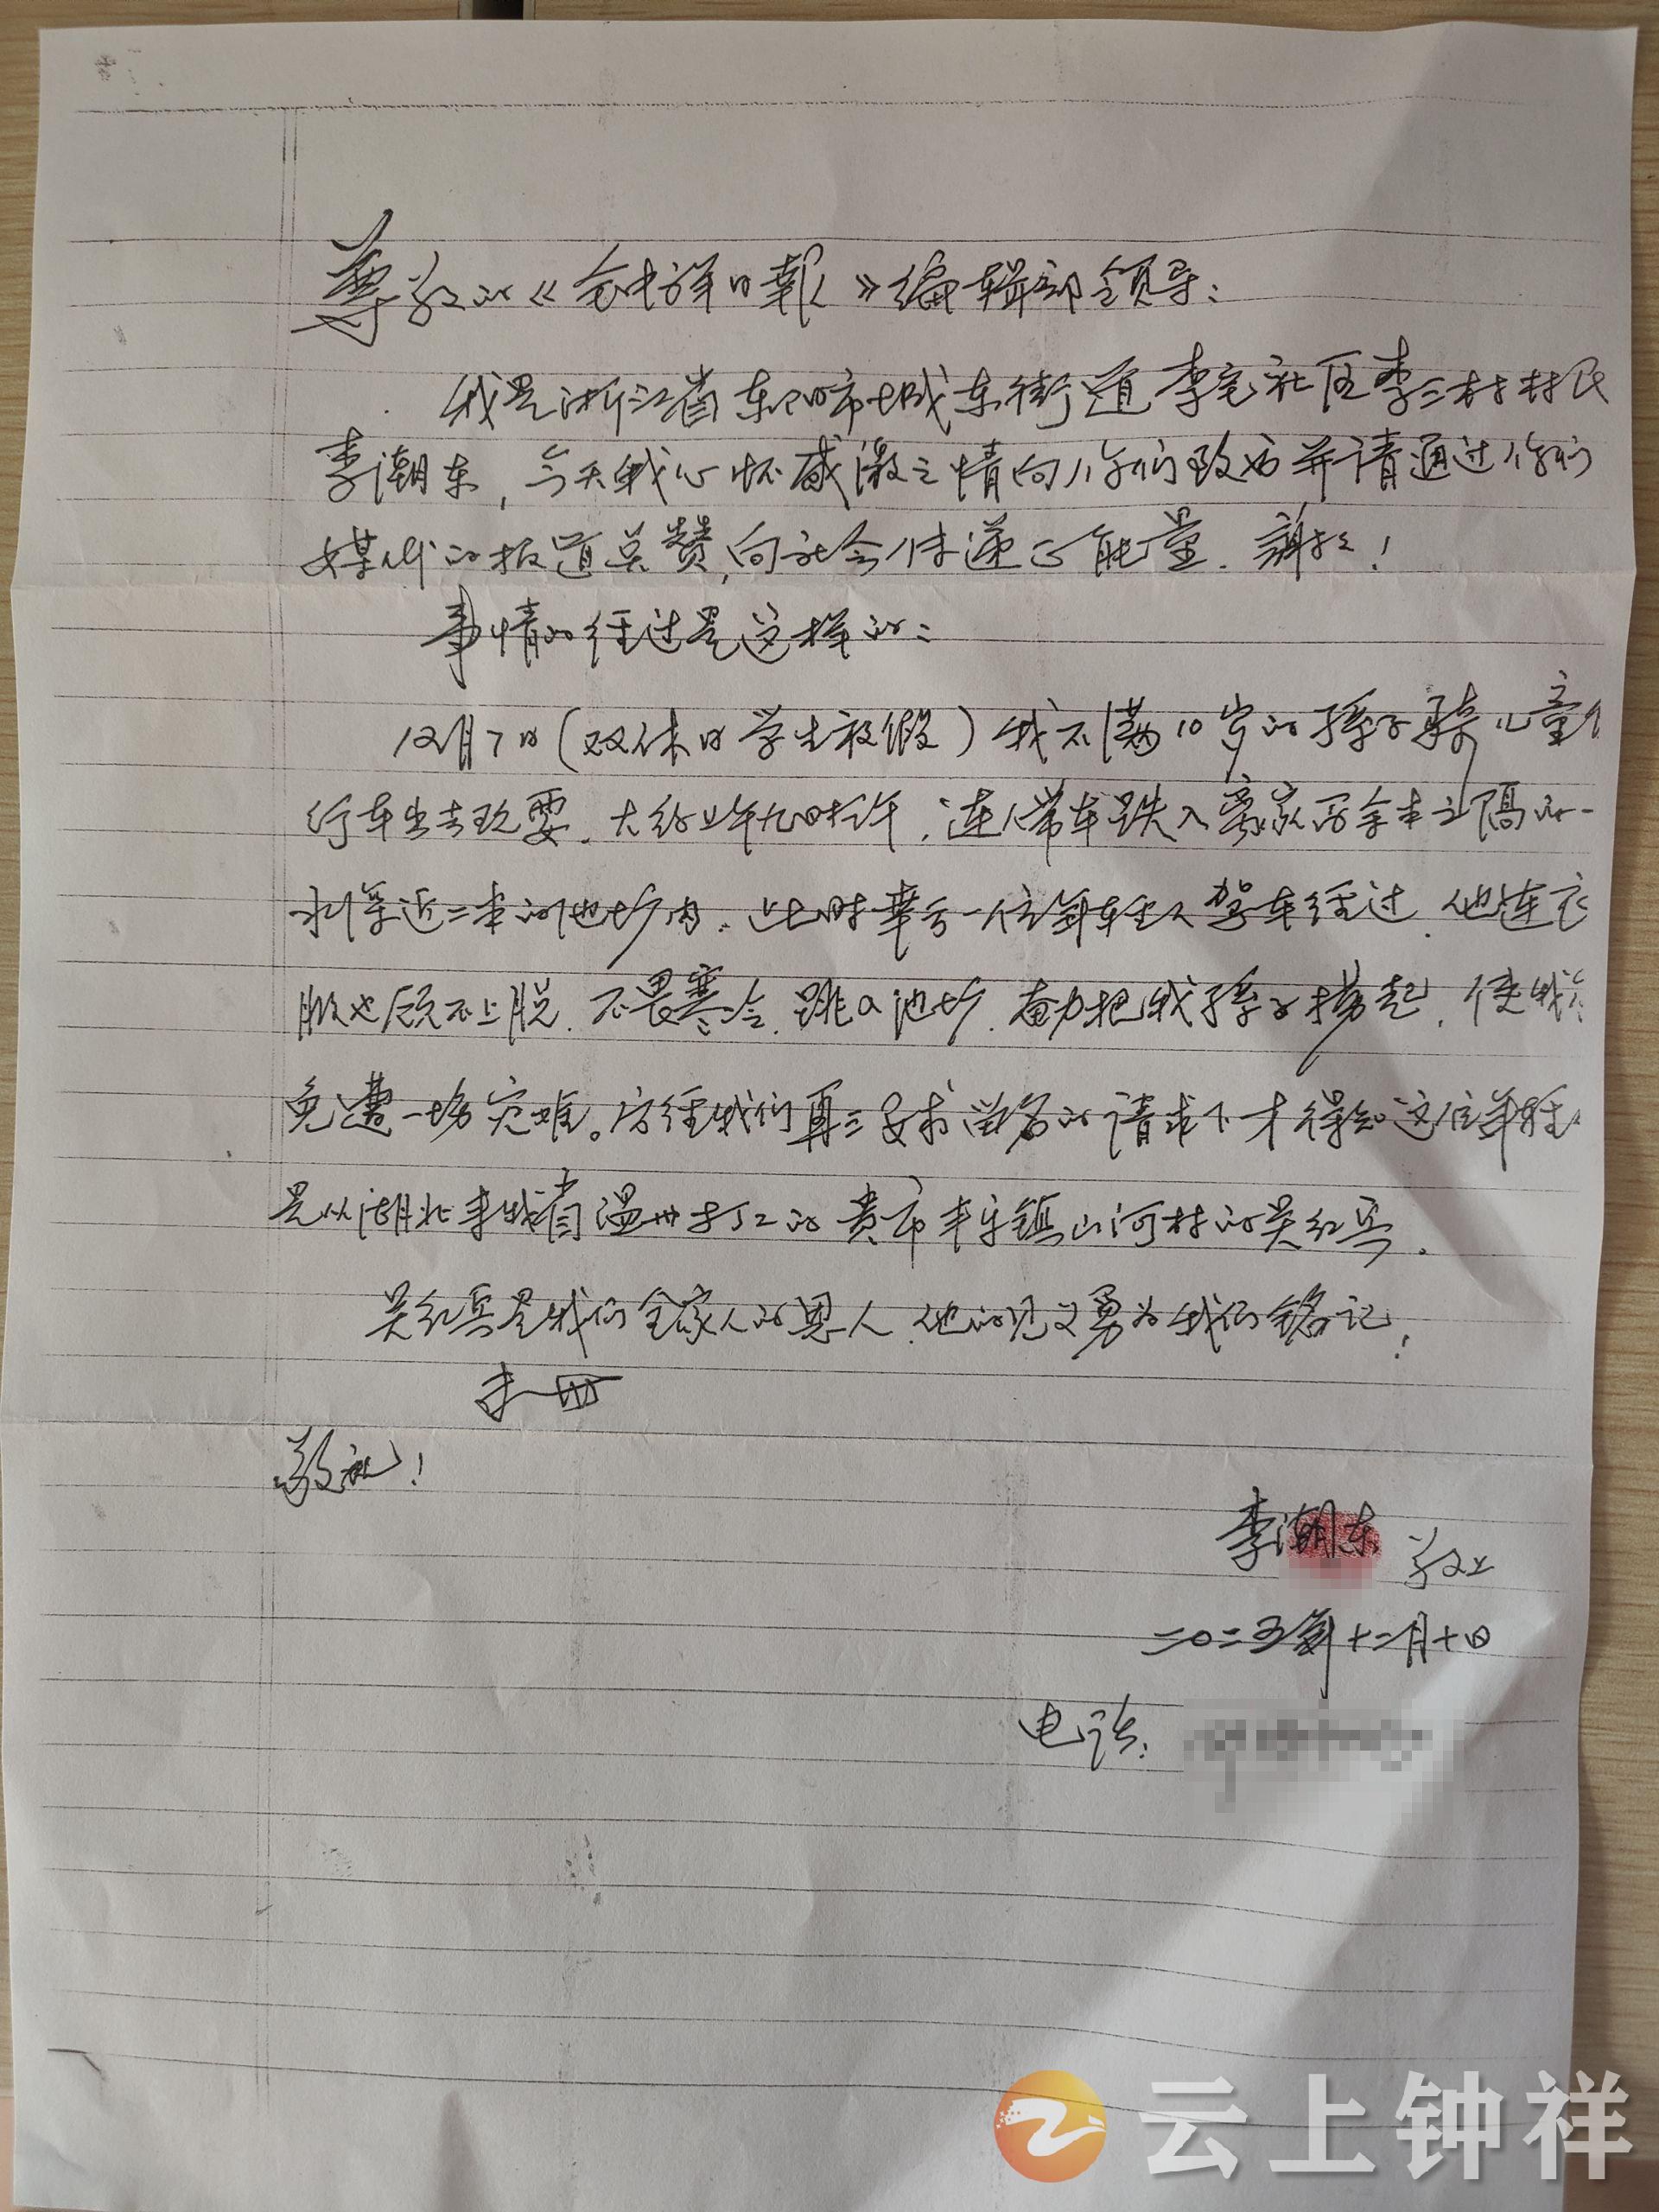 尊敬的《钟祥日報》编辑部领导：
我是浙江省东阳市城东街道李宅社区李三村村民
李潮东，今天我心怀感激之情向你们致函并请通过你们
媒体的报道点赞，向社会传递正能量．谢谢！
事情的经过是这样的：
12月7日（双休日学生放假）我不满10岁的孫子骑儿童
行车出去玩耍．大约上午九时许，连人带车跌入离家百余米之隔的一
水深近二米的池塘内．此时幸亏一位年轻人驾车经过．他连衣
服也顾不上脱．不畏寒冷．跳入池塘．奋力把我孫子捞起，使我
免遭一场灾难。后经我们再三要求留名的请求下才得知这位年轻
是从湖北来我省温州打工的贵市丰乐镇山河村的吴红兵．
吴红兵是我们全家人的恩人．他的见义勇为我们铭记．
敬礼！
李潮东 敬上
二〇二五年十二月十日
电话：
云上钟祥